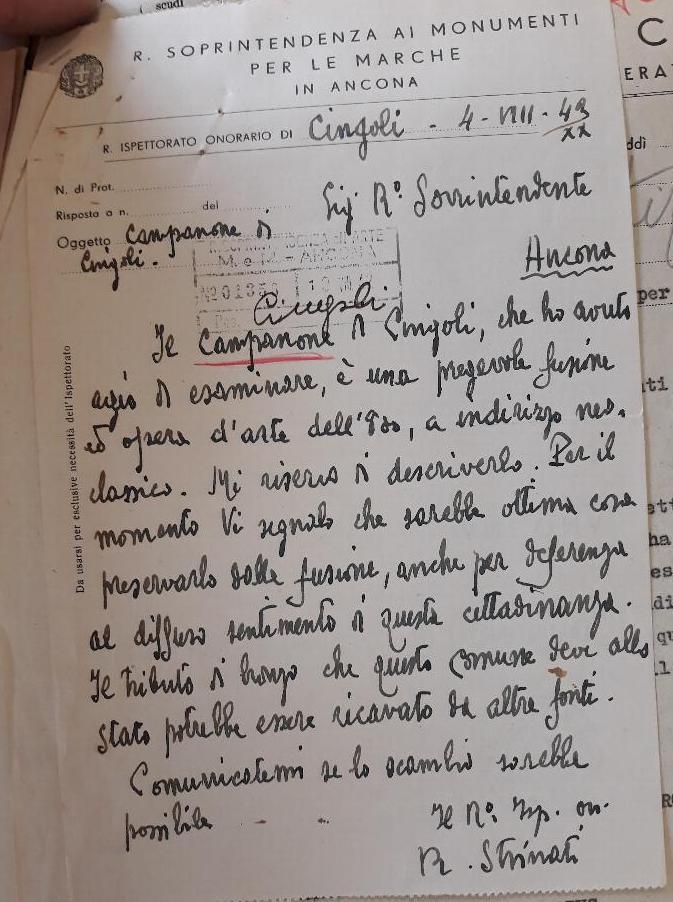 scudi
R. SOPRINTENDENZA AI MONUMENTI
PER LE MARCHE
IN ANCONA
R. ISPETTORATO ONORARIO DI Cingoli - 4 - VIII - 43
XX
N. di Prot.
Risposta a n. del
Sig. R.º Sovrintendente
Oggetto Campanone di
Cingoli.
Ancona
M. e M. - ANCONA
Cingoli
Il Campanone di Cingoli, che ho avuto
agio di esaminare, è una pregevole fusione
ed opera d'arte dell'800, a indirizzo neo-
classico. Mi riservo di descriverlo. Per il
momento Vi segnalo che sarebbe ottima cosa
preservarlo dalla fusione, anche per deferenza
al diffuso sentimento di questa cittadinanza.
Il tributo di bronzo che questo Comune deve allo
Stato potrebbe essere ricavato da altre fonti.
Comunicatemi se lo scambio sarebbe
possibile
Il R.º Isp. on.
R. Strinati
Da usarsi per esclusive necessità dell'Ispettorato
C
ERA
ddì
per